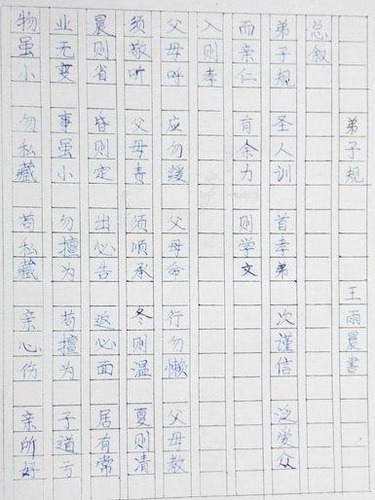 弟子规 王雨晨書
总叙
弟子规 圣人训 首孝弟 次谨信 泛爱众
而亲仁 有余力 则学文
入则孝
父母呼 应勿缓 父母命 行勿懒 父母教
须敬听 父母责 须顺承 冬则温 夏则清
晨则省 昏则定 出必告 返必面 居有常
业无变 事虽小 勿擅为 苟擅为 子道亏
物虽小 勿私藏 苟私藏 亲心伤 亲所好